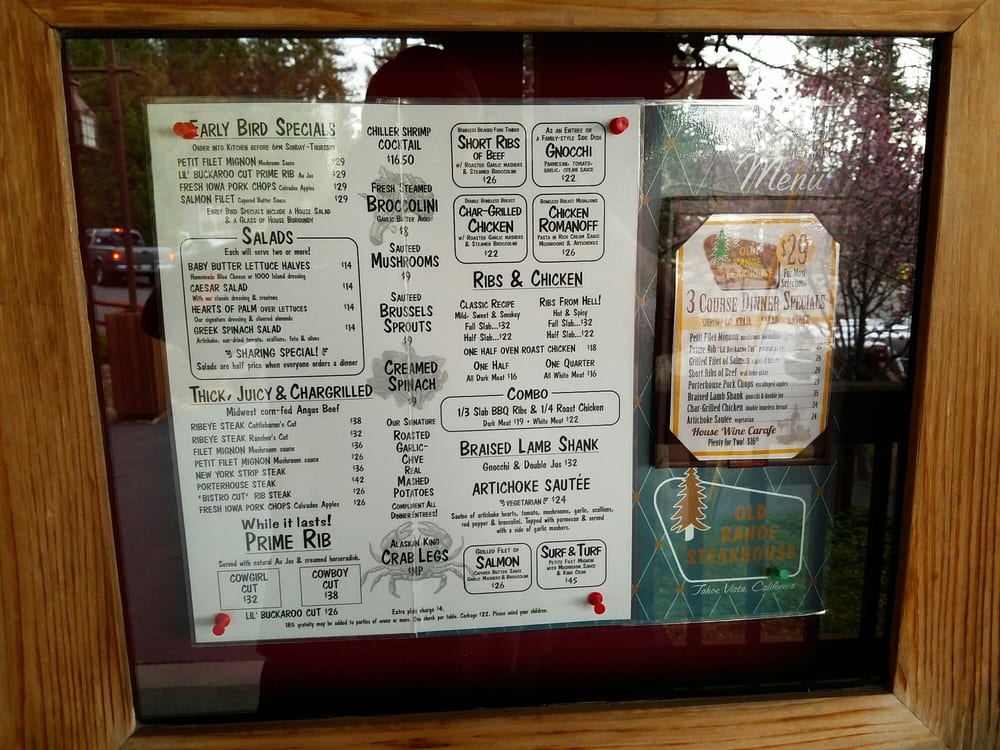 Early Bird Specials
Order into Kitchen before 6pm Sunday-Thursday
Petit Filet Mignon Mushroom Sauce $29
Lil' Buckaroo Cut Prime Rib Au Jus $29
Fresh Iowa Pork Chops Calvados Apples $29
Salmon Filet Capered Butter Sauce $29
Early Bird Specials include a House Salad
& a Glass of House Burgundy
Salads
Each will serve two or more!
Baby Butter Lettuce Halves $14
Homemade Bleu Cheese or 1000 Island dressing
Caesar Salad $14
With our classic dressing & croutons
Hearts of Palm over Lettuces $14
Our signature dressing & slivered almonds
Greek Spinach Salad $14
Artichoke, sun-dried tomato, scallions, feta & olives
Sharing Special!
Salads are half price when everyone orders a dinner
Thick, Juicy & Chargrilled
Midwest corn-fed Angus Beef
Ribeye Steak Cattlebaron's Cut $38
Ribeye Steak Rancher's Cut $32
Filet Mignon Mushroom sauce $36
Petit Filet Mignon Mushroom sauce $26
New York Strip Steak $36
Porterhouse Steak $42
"Bistro Cut" Rib Steak $26
Fresh Iowa Pork Chops Calvados Apples $26
While it lasts!
Prime Rib
Served with natural Au Jus & creamed horseradish.
Cowgirl
Cut
$32
Cowboy
Cut
$38
Lil' Buckaroo Cut $26
Chiller Shrimp
Cocktail
$16.50
Fresh Steamed
Broccolini
Garlic Butter Aioli
$8
Sauteed
Mushrooms
$9
Sauteed
Brussels
Sprouts
$9
Creamed
Spinach
$9
Our Signature
Roasted
Garlic-
Chive
Real
Mashed
Potatoes
Compliment All
Dinner Entrees!
Alaskan King
Crab Legs
$MP
Boneless Braised Fork Tender
Short Ribs
of Beef
w/ Roasted Garlic mashers
& Steamed Broccolini
$26
As an Entree or
a Family-style Side Dish
Gnocchi
Parmesan-tomato-
garlic-cream sauce
$22
Double Boneless Breast
Char-Grilled
Chicken
w/ Roasted Garlic mashers
& Steamed Broccolini
$22
Boneless Breast Medallions
Chicken
Romanoff
Pasta in Rich Cream Sauce
Mushrooms & Artichokes
$26
Ribs & Chicken
Classic Recipe
Mild- Sweet & Smokey
Full Slab...$32
Half Slab...$22
Ribs From Hell!
Hot & Spicy
Full Slab...$32
Half Slab...$22
One Half Oven Roast Chicken $18
One Half
All Dark Meat $16
One Quarter
All White Meat $16
Combo
1/3 Slab BBQ Ribs & 1/4 Roast Chicken
Dark Meat $19 • White Meat $22
Braised Lamb Shank
Gnocchi & Double Jus $32
Artichoke Sautée
Vegetarian $24
Sautee of artichoke hearts, tomato, mushrooms, garlic, scallions,
red pepper & broccolini. Topped with parmesan & served
with a side of garlic mashers.
Grilled Filet of
Salmon
Capered Butter Sauce
Garlic Mashers & Broccolini
$26
Surf & Turf
Petite Filet Mignon
with Mushroom Sauce
& King Crab
$45
Extra plate charge $4. Corkage $22. Please mind your children.
18% gratuity may be added to parties of seven or more. One check per table.
Menu
Old
Range
Steakhouse
$29
For Most
Selections
3 Course Dinner Specials
Shrimp Cocktail Salad Entree
Petit Filet Mignon mushroom bordelaise
Prime Rib "Lil Buckaroo Cut"
Grilled Filet of Salmon 29
Short Ribs of Beef 29
Porterhouse Pork Chops escalloped apples 29
Braised Lamb Shank gnocchi & double jus 35
Char-Grilled Chicken double boneless breast 24
Artichoke Sautée vegetarian 24
House Wine Carafe
Plenty for Two! $16
Old
Range
Steakhouse
Tahoe Vista, California